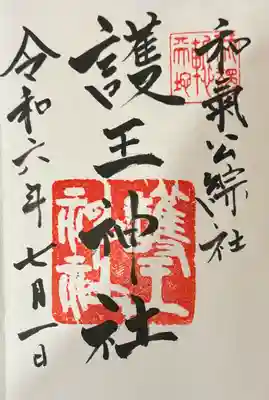 和氣公綜社
我獨慙天地
護王神社
護王
神社
令和六年七月一日